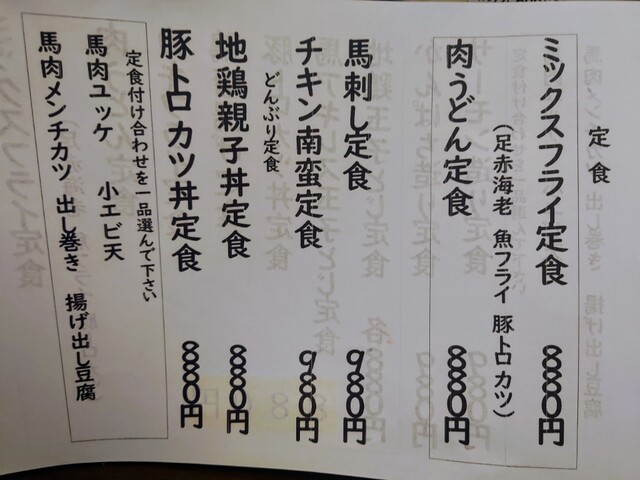 定食
ミックスフライ定食 880円
（足赤海老 魚フライ 豚トロカツ）
肉うどん定食 880円
馬刺し定食 980円
チキン南蛮定食 980円
どんぶり定食
地鶏親子丼定食 880円
豚トロカツ丼定食 880円
定食付け合わせを一品選んで下さい
馬肉ユッケ 小エビ天
馬肉メンチカツ 出し巻き 揚げ出し豆腐